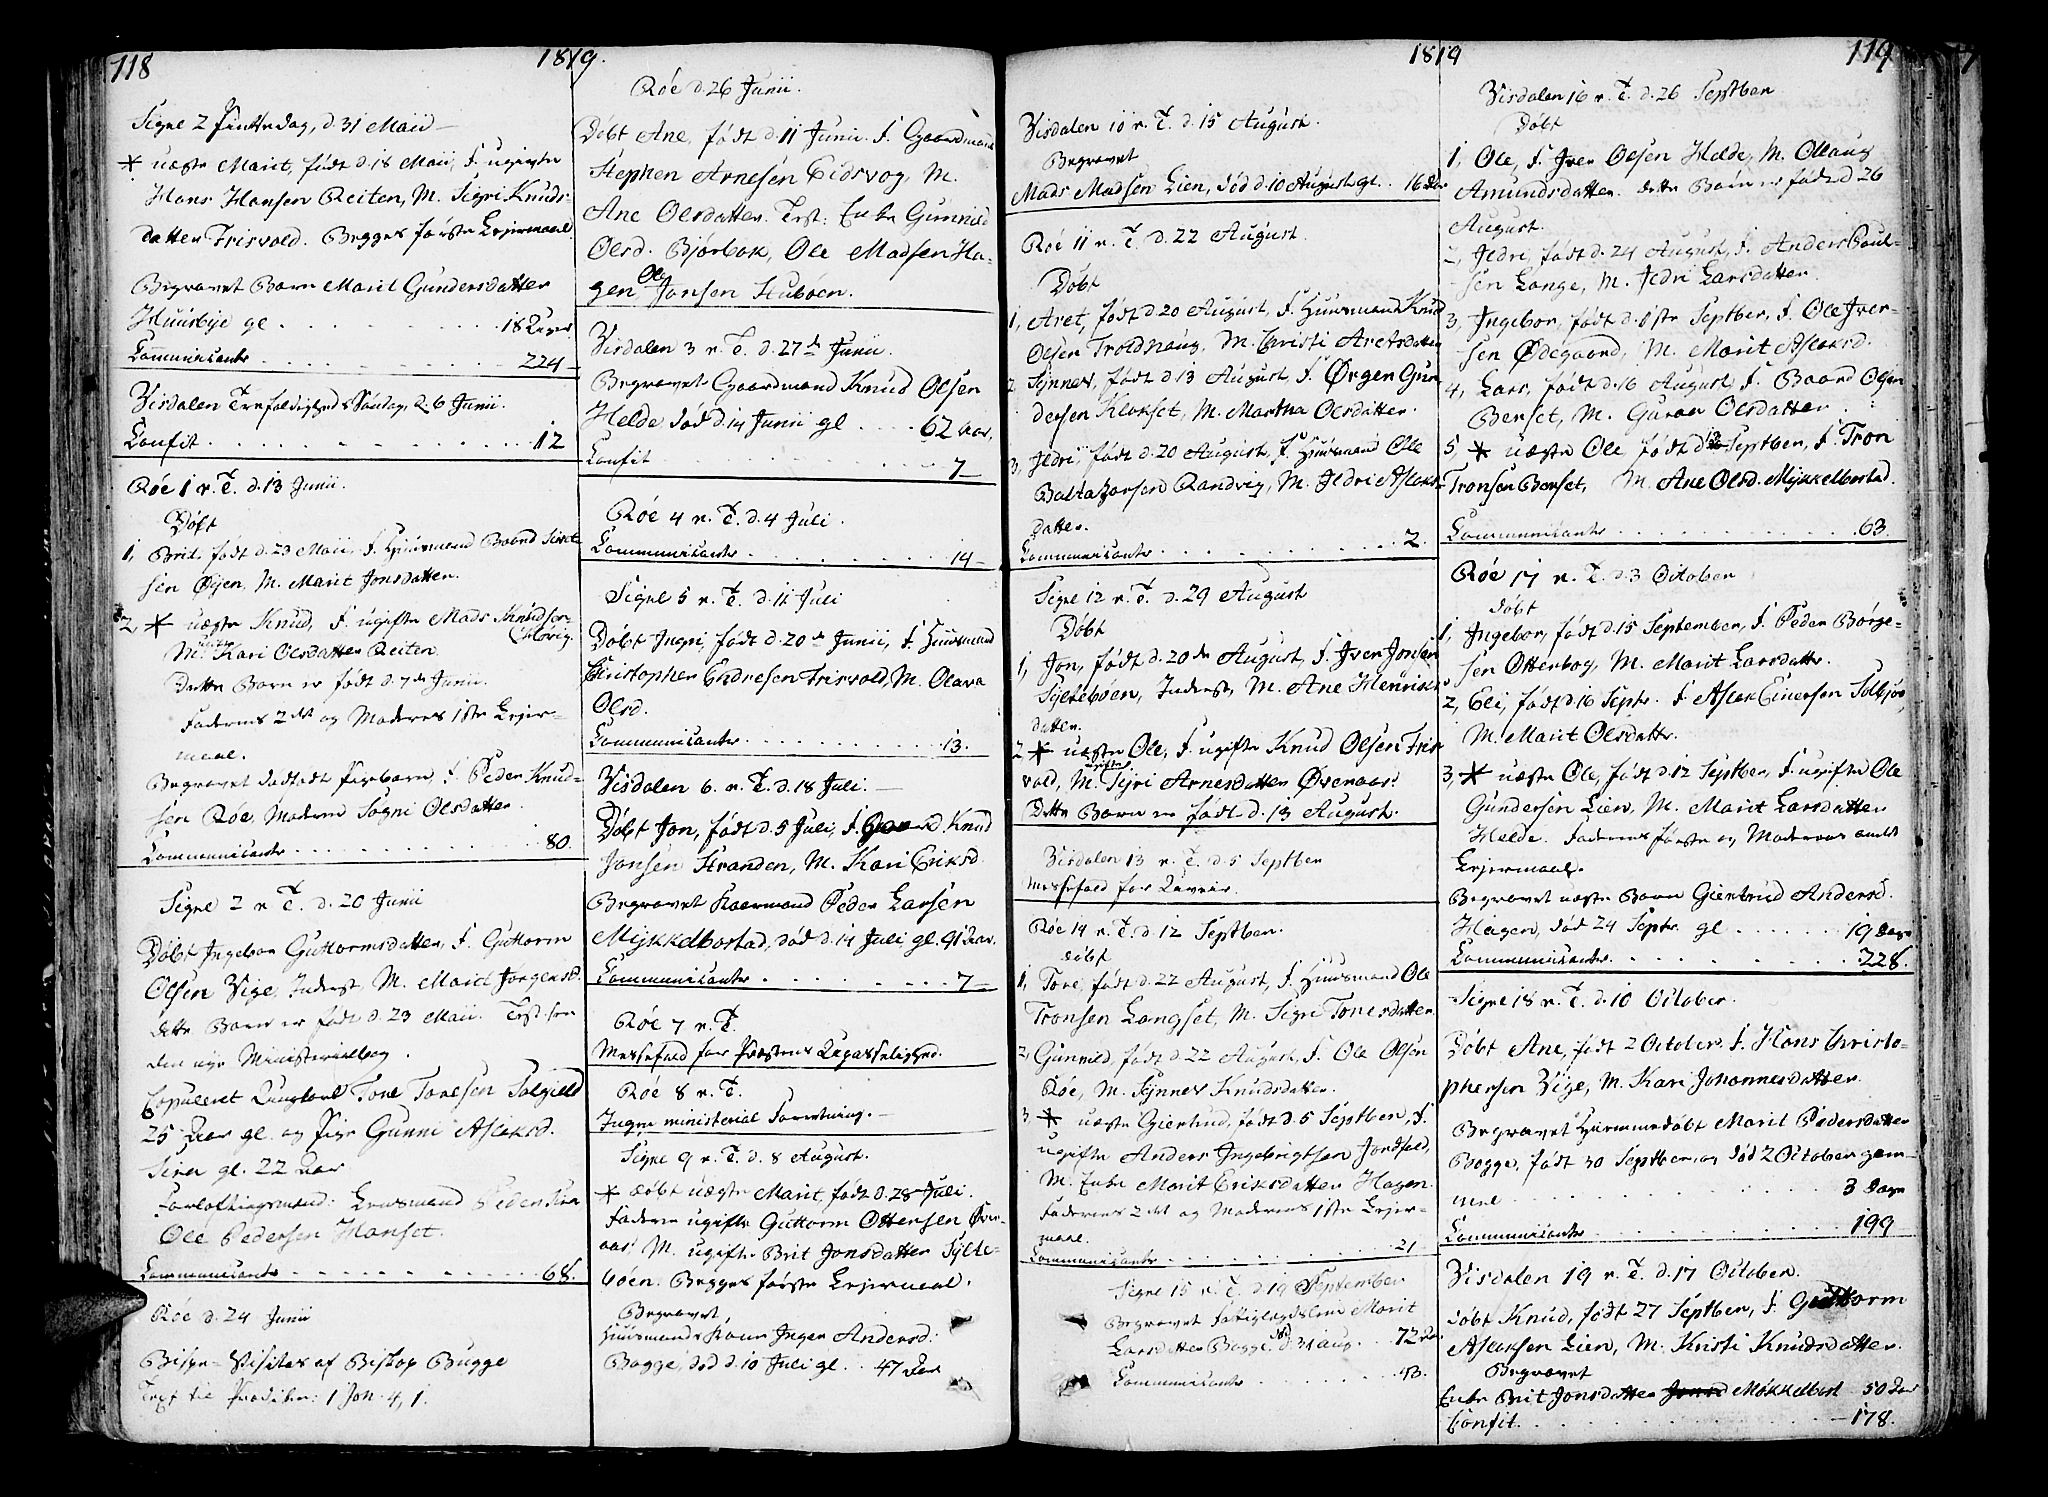 118
1819.
Signe 2 Pintsedag, d. 31 Maii
* uægte Marit, født d. 18 Maii, F. ugivte
Hans Hansen Reiten, M. Sigri Knuds-
datter Frisvold. Begges første Lejermaal.
Begravet Barn Marit Gundersdatter
Huusbye gl. 18 Uger
Communicanter 224
Visdalen Trefoldigheds Søndag, d. 6 Junii.
Confit. 12
Røe 1 r. T. d. 13 Junii.
Døbt
1, Brit, født d. 23 Maii, F. Huusmand Baard Sivert
sen Øijen, M. Marit Jonsdatter.
2, * uægte Knud, F. ugifte Mads Knudsen
M. Kari Olsdatter Reiten.
Dette Barn er født d. 7de Junii.
Faderens 2det og Moderens 1ste Lejer-
maal.
Begravet dødfødt Pigebarn F. Peder Knud-
sen Røe, Moderen Sogni Olsdatter.
Communicanter 80.
Signe 2 r. T. d. 20 Junii
Døbt Ingebor Guttormsdatter, F. Guttorm
Olsen Vige, Inderst, M. Marit Jørgensd.
dette Barn er født d. 23 Maii. Test. see
den nye Ministerialbog.
Copuleret Ungkarl Tore Toresen Solgield
25 Aar gl. og Pige Gunni Aslaksd.
Sira gl. 22 Aar
Forlovningsmænd: Lensmand Peder Sira
Ole Pedersen Hanset.
Communicanter 68.
Røe d. 24 Junii
Bispe-Visitas af Biskop Bugge
Text til Prædiken: 1 Joh. 4, 1.
Røe d. 26 Junii.
Døbt Ane, født d. 11 Junii. F. Gaardmand
Stephen Arnesen Eidsvog, M.
Ane Olsdatter. Test: Enke Gunnild
Olsd. Bjørbak, Ole Madsen Ha-
gen, Ole Jonsen Stubøen.
Visdalen 3 r. T. d. 27de Junii.
Begravet Gaardmand Knud Olsen
Helde, død d. 14 Junii gl. 62 Aar,
Confit. 7
Røe 4 r. T. d. 4 Juli.
Communicanter 14
Signe 5 r. T. d. 11 Juli
Døbt Ingri, født d. 20de Junii, F. Huusmand
Christopher Endresen Frisvold, M. Olava
Olsd.
Communicanter 13.
Visdalen 6. r. T. d. 18 Juli.
Døbt Jon, født d. 5 Juli, F. Knud
Jonsen Stranden, M. Kari Eriksd.
Begravet Kaarmand Peder Larsen
Mykkelbostad, død d. 14 Juli gl. 91 Aar.
Communicanter 7
Røe 7 r. T.
Messefald for Præstens Upasselighed.
Røe 8 r. T.
Ingen ministerial Forretning.
Signe 9 r. T. d. 8 August.
* døbt uægte Marit, født d. 28 Juli.
Faderen ugifte Guttorm Ottersen Øver-
aas: M. ugifte Brit Jonsdatter Sylte-
bøen: Begges første Lejermaal.
Begravet,
Huusmands Kone Inger Andersd:
Bogge, død d. 10 Juli gl. 47 Aar
1819
119
Visdalen 10 r. T. d. 15 August.
Begravet
Mads Madsen Lien, død d. 10 August gl. 16 Aar
Røe 11 r. T. d. 22 August.
Døbt
1, Aret, født d. 20 August, F. Huusmand Knud
Olsen Troldhaug, M. Christi Aretsdatter
2, Synnev, født d. 13 August, F. Ørgen Gun
dersen Klokset, M. Martha Olsdatter.
3, Ildri, født d. 20 August, F. Huusmand Ole
Baltazarsen Randvig, M. Ildri Aslaks-
datter.
Communicanter 2.
Signe 12 r. T. d. 29 August
Døbt
1, Jon, født d. 20de August, F. Iver Jonsen
Syltebøen, Inderst, M. Ane Henriks
datter.
2 * uægte Ole, F. ugifte Knud Olsen Fris
vold, M. ugifte Syri Arnesdatter Øveraas:
Dette Barn er født d. 13 August.
Visdalen 13 r. T. d. 5 Septber
Messefald for Uveir.
Røe 14 r. T. d. 12 Septber.
Døbt
1, Tore, født d. 22 August, F. Huusmand Ole
Tronsen Langset, M. Sigri Toresdatter
2, Gunnild, født d. 22 August, F. Ole Olsen
Røe, M. Synnev Knudsdatter.
3 * uægte Giertrud, født d. 5 Septber, F.
ugifte Anders Ingebrigtsen Jordfald,
M. Enke Marit Eriksdatter Hagen.
Faderens 2det og Moderens 1ste Lejer-
maal.
Communicanter 21
Signe 15 r. T. d. 19 September
Begravet Fattiglægdslem Marit
Larsdatter Bogge, død d. 31 aug. 72 Aar
Communicanter 43.
Visdalen 16 r. T. d. 26 Septber
Døbt
1, Ole, F. Iver Olsen Helde, M. Ollaug
Amundsdatter. dette Barn er født d. 26
August.
2, Ildri, født d. 24 August, F. Anders Poul-
sen Lange, M. Ildri Larsdatter.
3, Ingebor, født d. 1ste Septber, F. Ole Iver-
sen Ødegaard, M. Marit Aslaksd.
4, Lars, født d. 16 August, F. Baard Olsen
Berset, M. Guroe Olsdatter.
5, * uægte Ole født d. Septber, F. Tron
Tronsen Berset, M. Ane Olsd. Mykkelbostad.
Communicanter 63.
Røe 17 r. T. d. 3 October
Døbt
1, Ingebor, født d. 15 September, F. Peder Børge-
sen Otterbog, M. Marit Larsdatter.
2, Eli, født d. 16 Septr. F. Aslak Einersen Solbjør,
M. Marit Olsdatter.
3, * uægte Ole, født d. 12 Septber, F. ugifte Ole
Gundersen Lien, M. Marit Larsdatter
Helde. Faderens første og Moderens andet
Lejermaal.
Begravet uægte Barn Giertrud Andersd.
Hagen, død 24 Septr. gl 19 Dage
Communicanter 228.
Signe 18 r. T. d. 10 October.
Døbt Ane, født 2 October, F. Hans Christo-
phersen Vige, M. Kari Johannesdatter.
Begravet Hiemmedøbt Marit Pedersdatter
Bogge, født 30 Septber, og død 2 October gam-
mel 3 Dage
Communicanter 199
Visdalen 19 r. T. d. 17 October.
Døbt Knud, født 27 Septber, F. Guttorm
Aslaksen Lien, M. Kristi Knudsdatter.
Begravet
Enke Brit Jonsdatter Møkkelbost 50 Aar
Confit. 178.